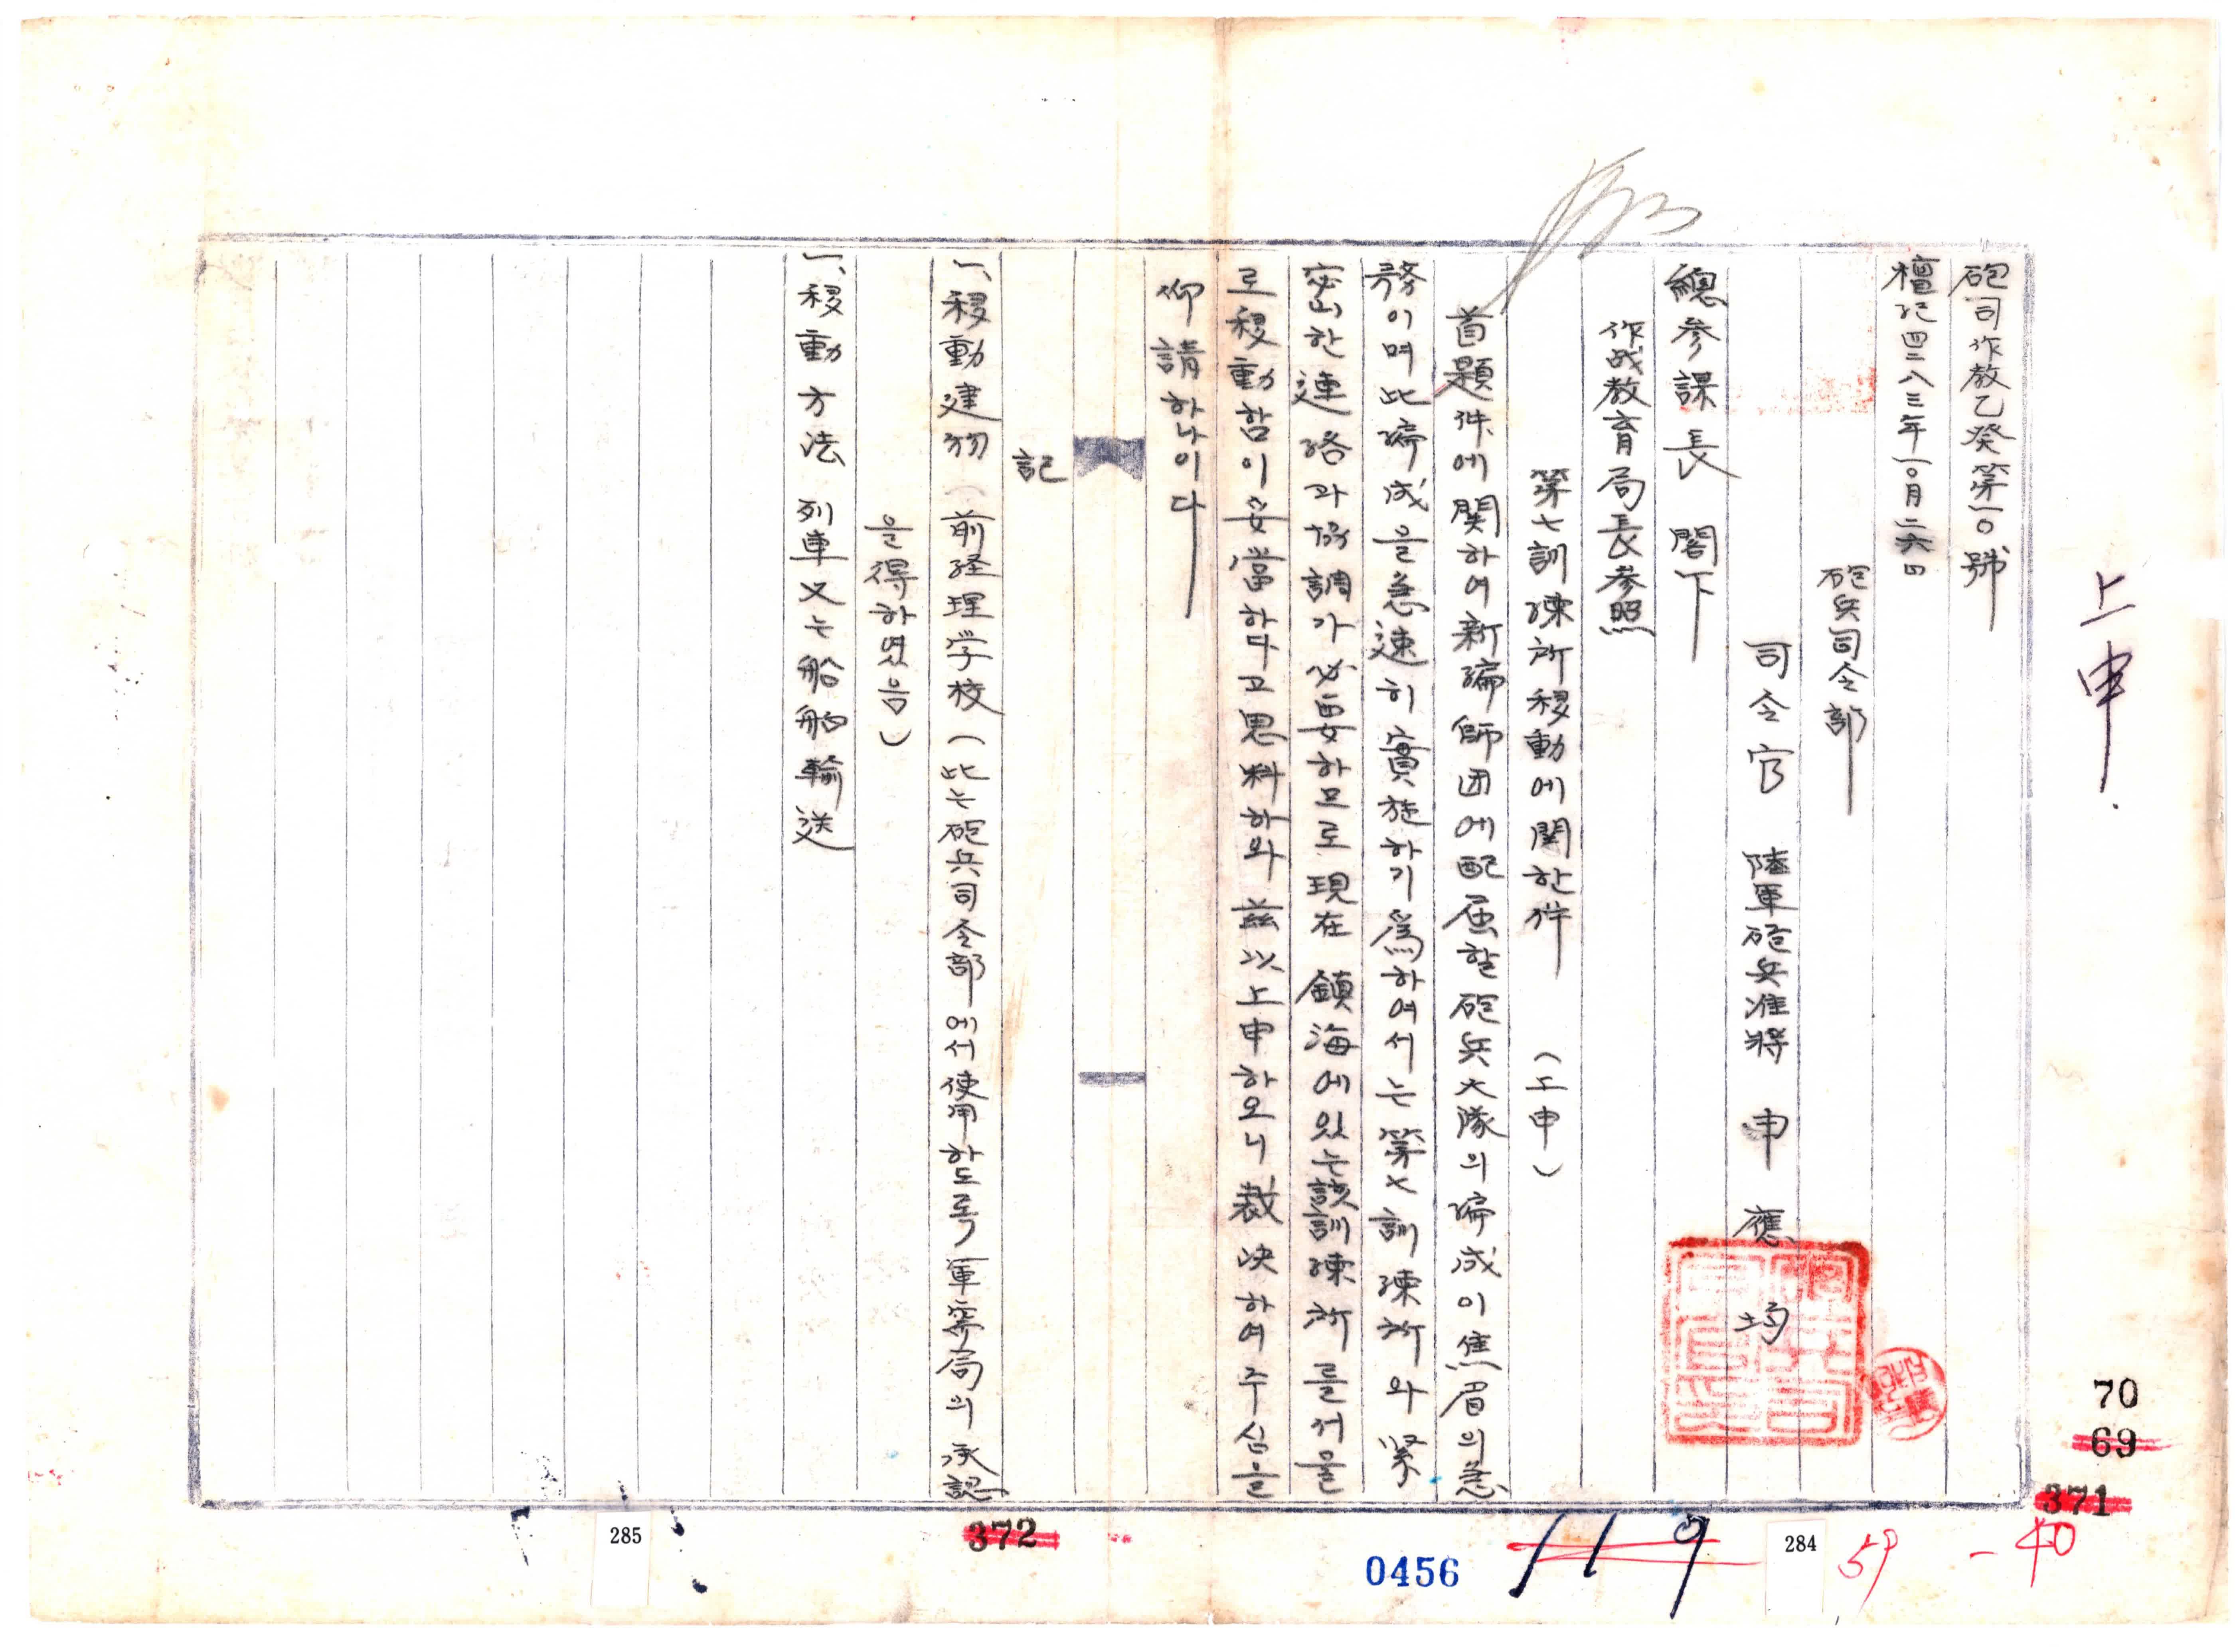 上申
砲司作教乙癸第一〇號
檀紀四二八三年一〇月二六日
砲兵司令部
司令官 陸軍砲兵准將 申應均
總參謀長 閣下
作战教育局長參照
第七訓練所移動에関한件 (上申)
首題件에関하여新編師団에配属할砲兵大隊의編成이焦眉의急
務이며此編成을急速히實施하기爲하여서는第七訓練所와緊
密한連絡과協調가必要하므로現在鎮海에있는該訓練所를서울
로移動함이妥當하다고思料하와茲以上申하오니裁决하여주심을
仰請하나이다
記
一、移動建物(前経理学校(此는砲兵司令部에서使用하도록軍務局의承認
을得하였음)
一、移動方法 列車又는船舶輸送
70
69
371
372
285
284
0456
119
59
-40